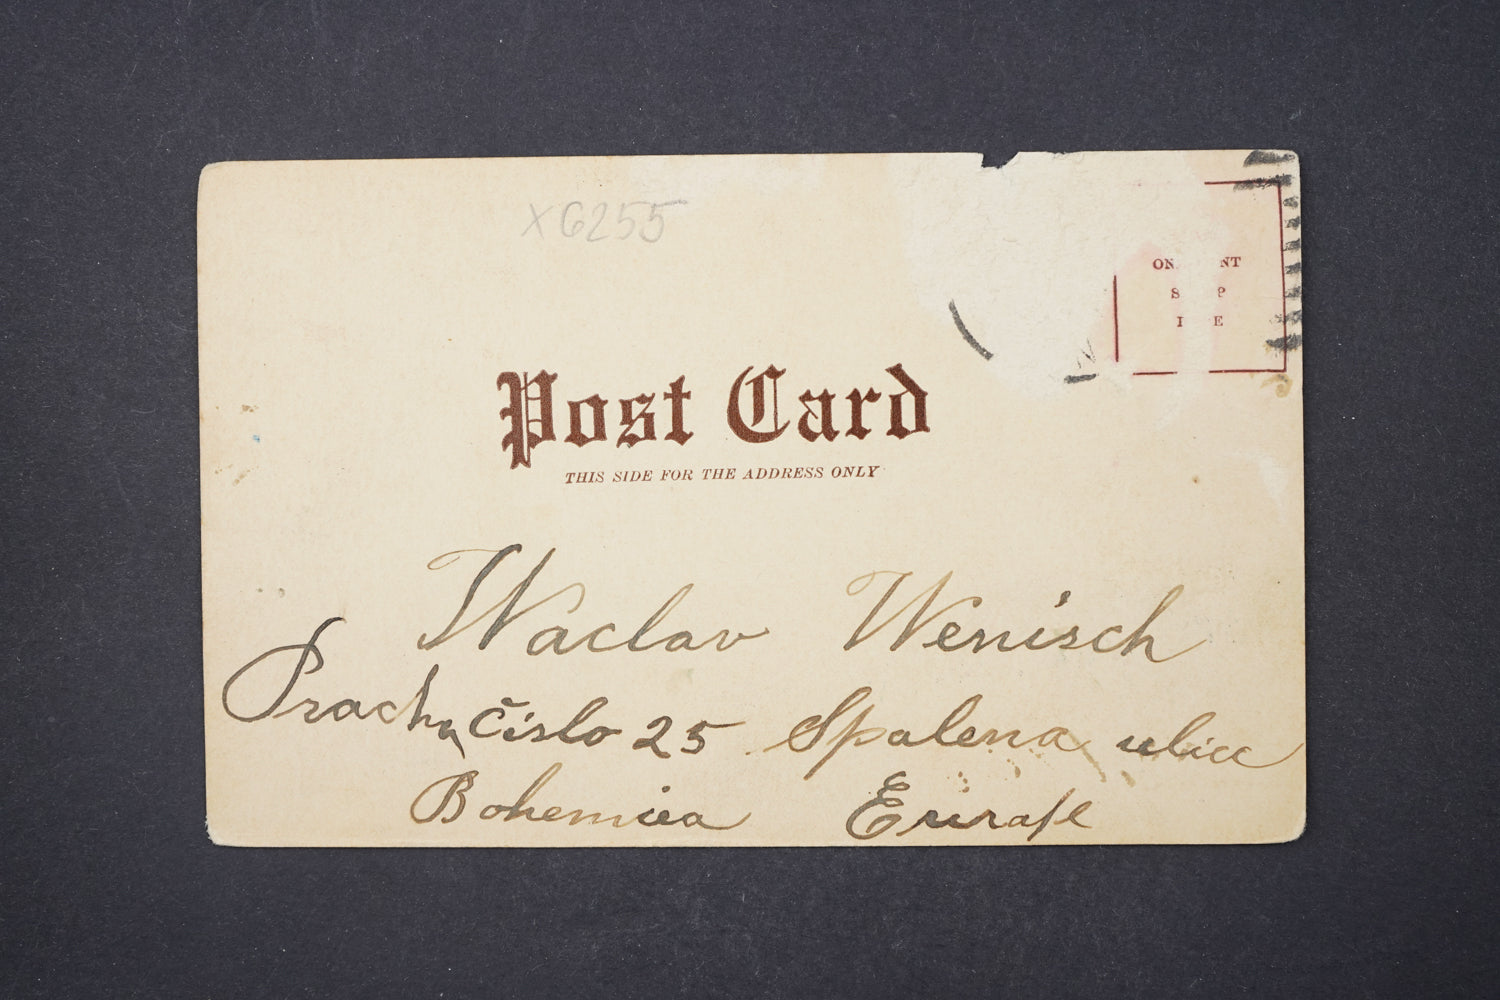 X6255
ON NT
S P
E
Post Card
THIS SIDE FOR THE ADDRESS ONLY
Waclav Wenisch
Pracha číslo 25 Spalena ulice
Bohemiea Eurape